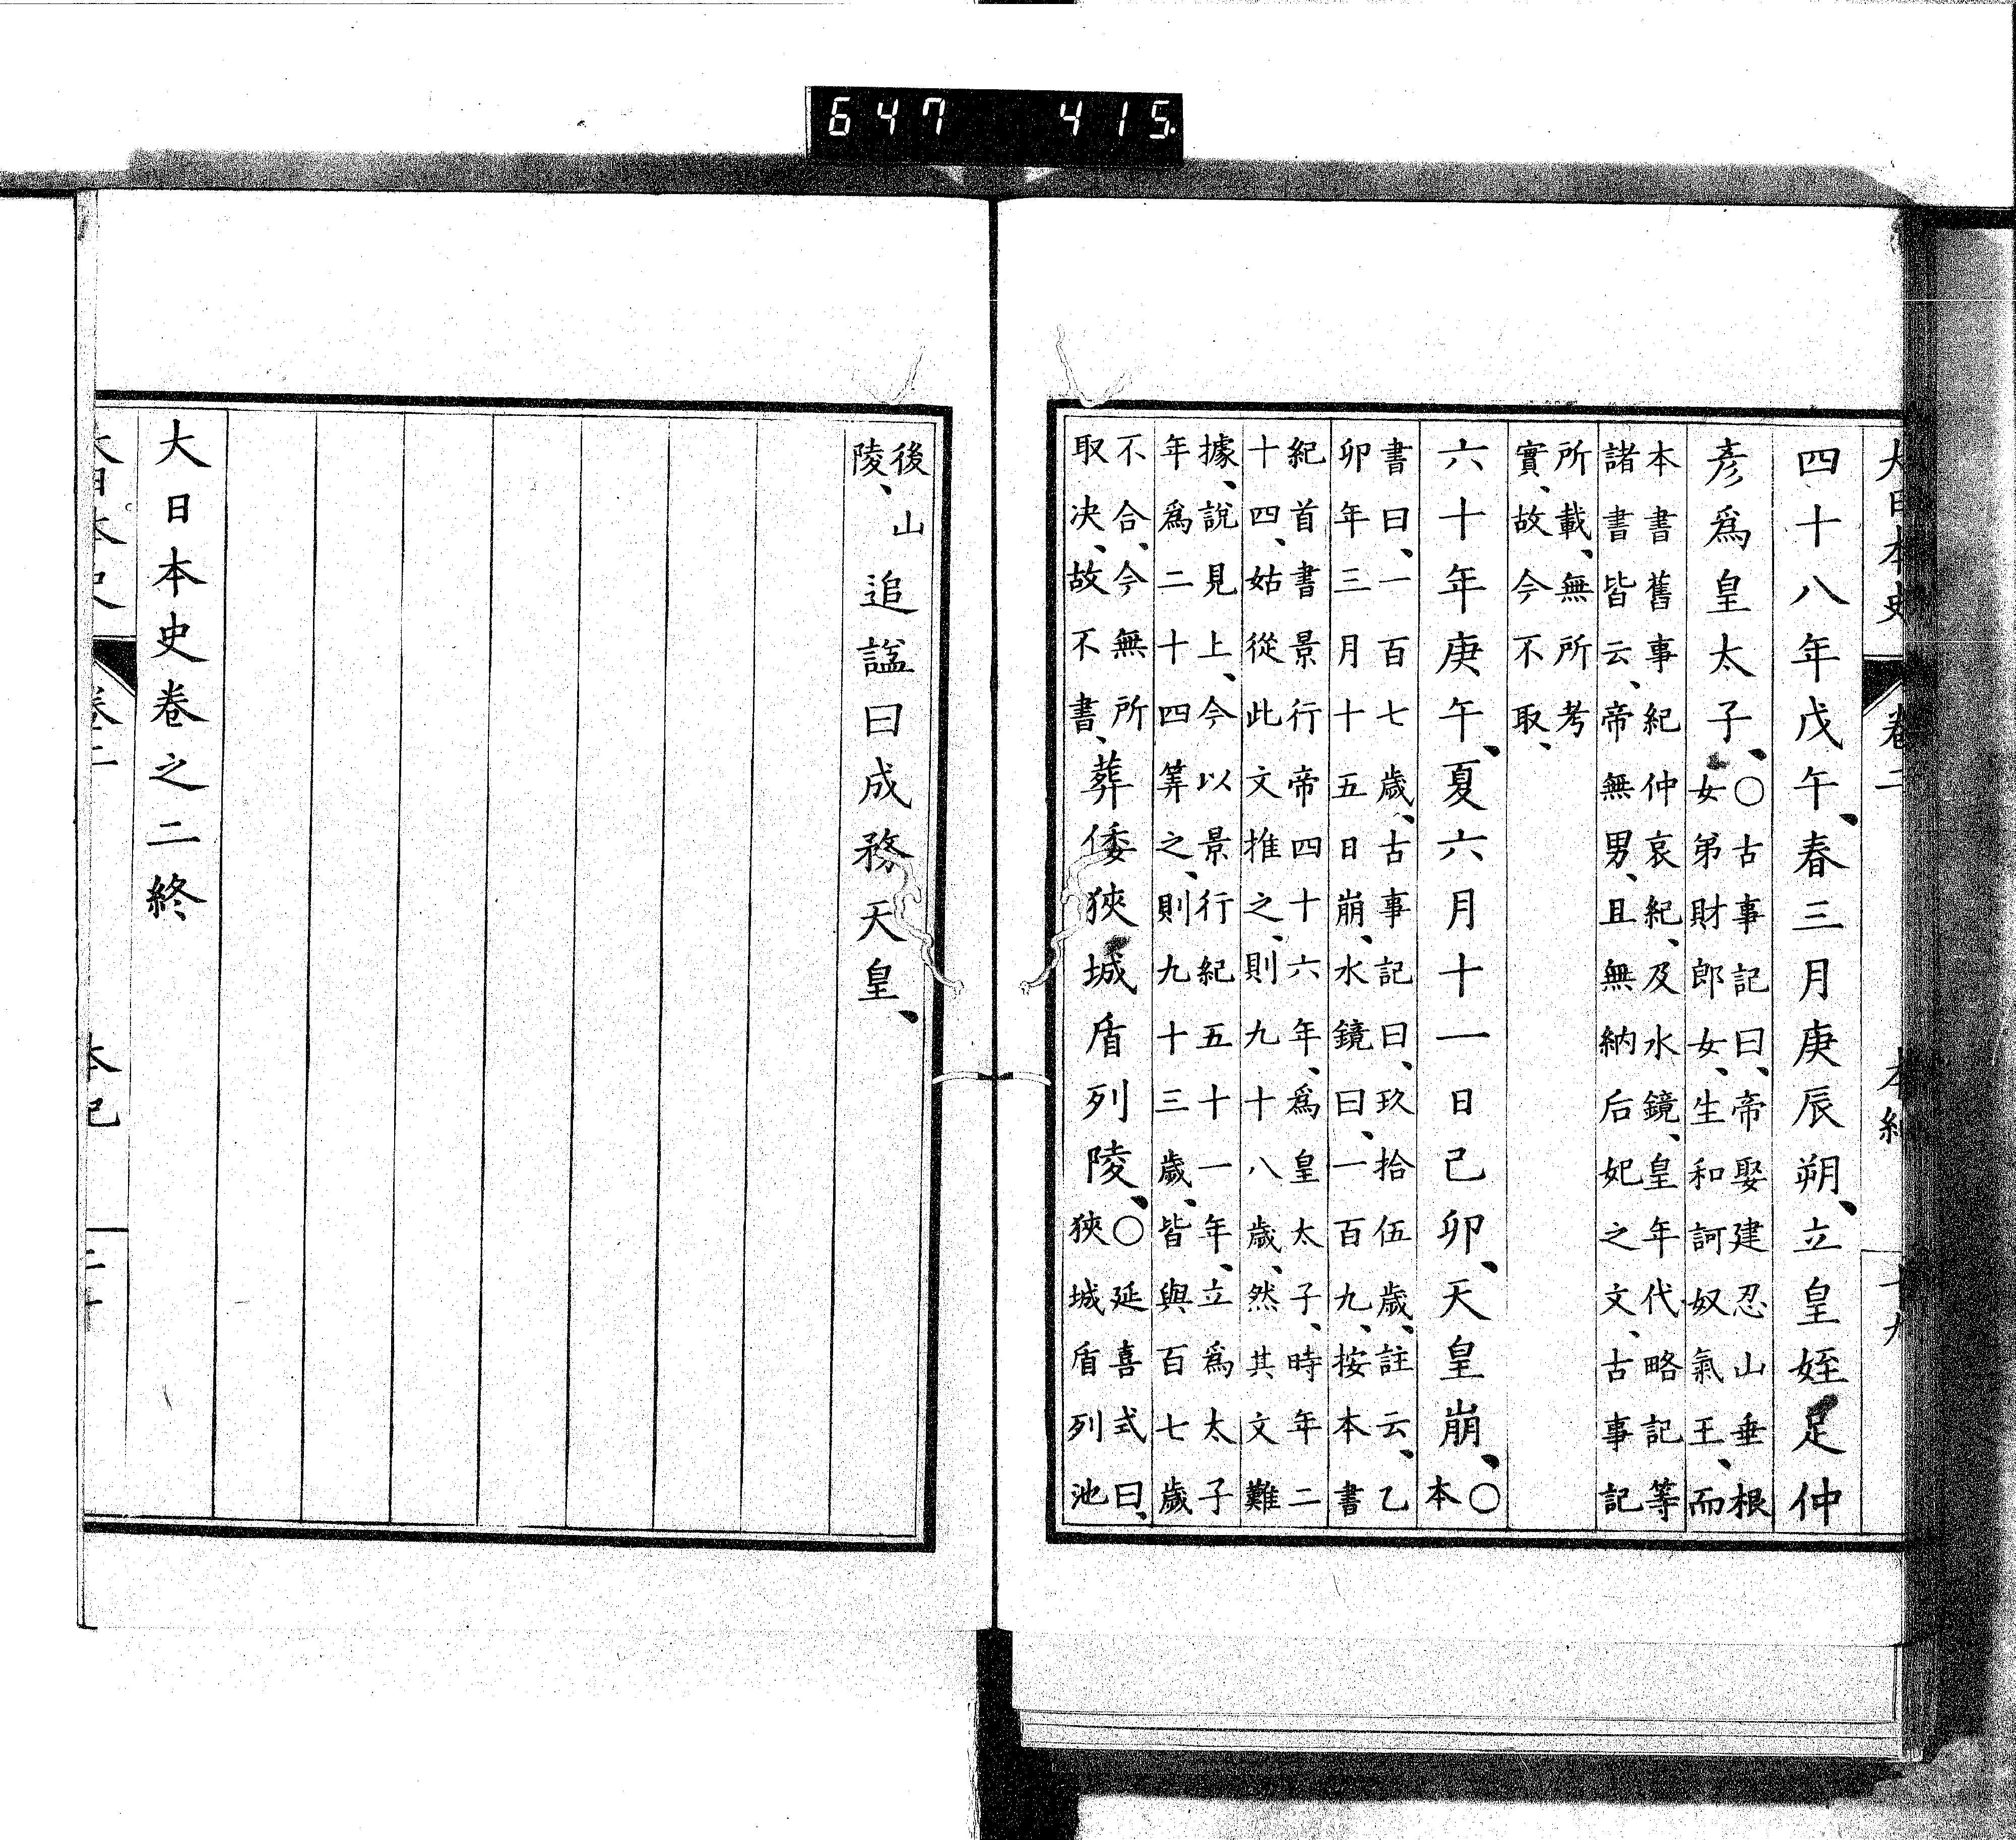 647 415.
大日本史 卷二 本紀 十九
四十八年戊午、春三月庚辰朔、立皇姪足仲
彥爲皇太子、〇古事記曰、帝娶建忍山垂根
女弟財郎女、生和訶奴氣王、而
本書舊事紀仲哀紀、及水鏡、皇年代略記等
諸書皆云、帝無男、且無納后妃之文、古事記
所載、無所考
實、故今不取、
六十年庚午、夏六月十一日己卯、天皇崩、〇本
書曰、一百七歲、古事記曰、玖拾伍歲、註云、乙
卯年三月十五日崩、水鏡曰、一百九、按本書
紀首書景行帝四十六年、爲皇太子、時年二
十四、姑從此文推之、則九十八歲、然其文難
據、說見上、今以景行紀五十一年、立爲太子
年爲二十四筭之、則九十三歲、皆與百七歲
不合、今無所
取决、故不書、葬倭狹城盾列陵、〇延喜式曰、
狹城盾列池
後山
陵、追諡曰成務天皇、
大日本史卷之二終
大日本史 卷二 本紀 二十